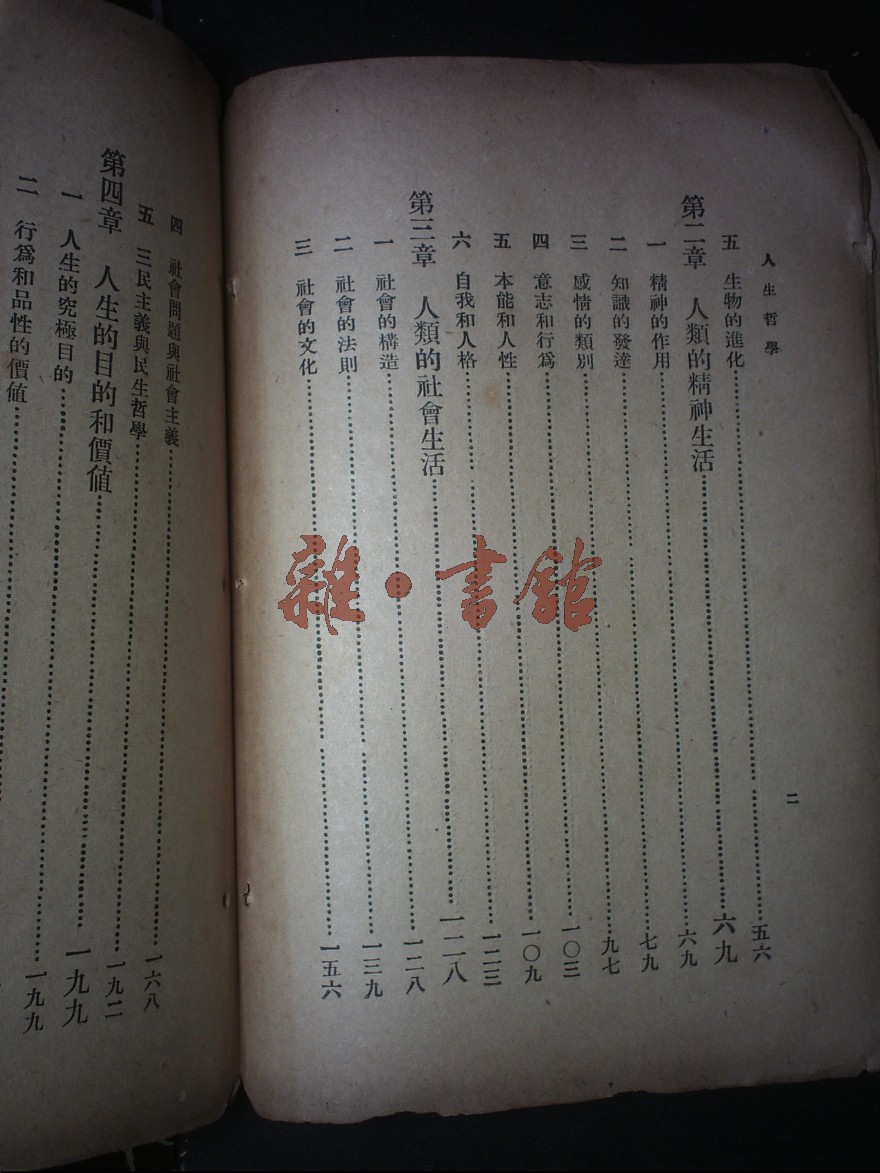 人生哲學
二
五 生物的進化……五六
第二章 人類的精神生活……六九
一 精神的作用……六九
二 知識的發達……七九
三 感情的類別……九七
四 意志和行爲……一〇三
五 本能和人性……一〇九
六 自我和人格……一二三
第三章 人類的社會生活……一二八
一 社會的構造……一二八
二 社會的法則……一三九
三 社會的文化……一五六
四 社會問題與社會主義……一六八
五 三民主義與民生哲學……一九二
第四章 人生的目的和價值……一九九
一 人生的究極目的……一九九
二 行爲和品性的價值……
雜·書館